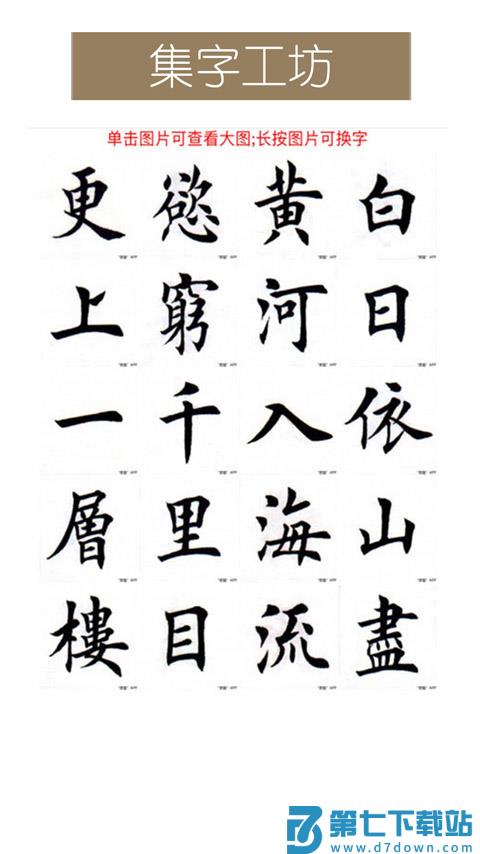 集字工坊
单击图片可查看大图;长按图片可换字
白日依山盡
黄河入海流
慾窮千里目
更上一層樓
第七下载站
www.d7down.com